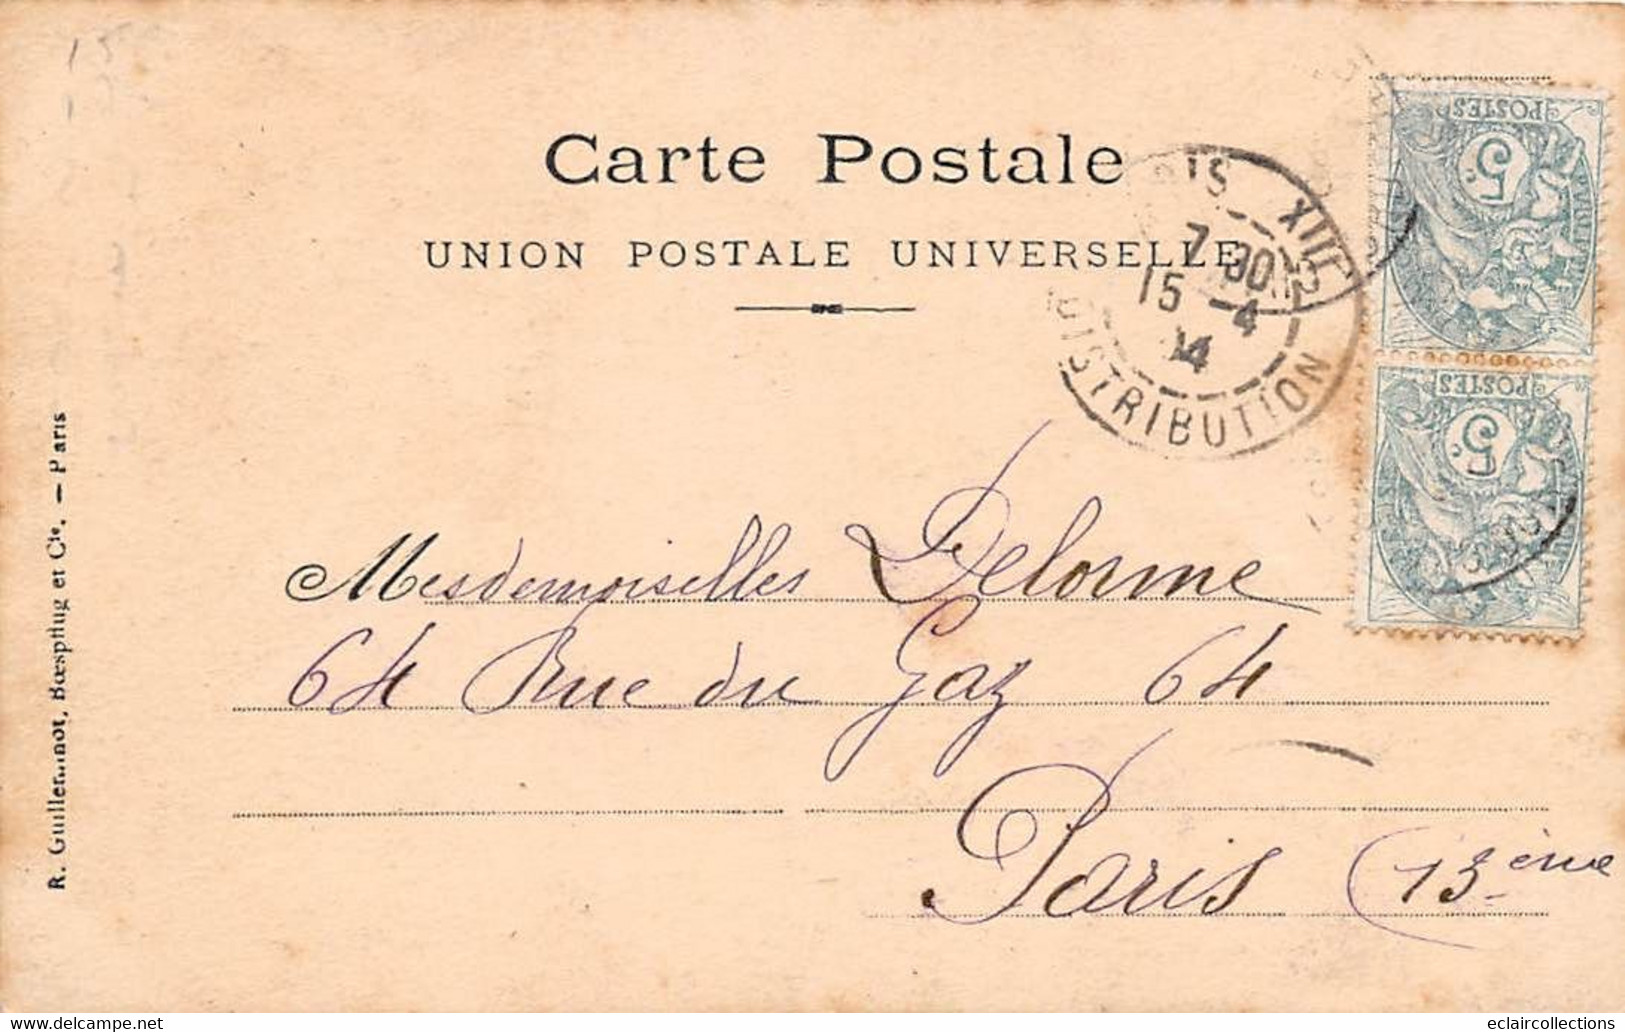 15
Carte Postale
UNION POSTALE UNIVERSELLE
R. Guilleminot, Bœspflug et Cie. — Paris
PARIS XIII
7 30
15 - 4
04
DISTRIBUTION
POSTES
5
POSTES
5
Mesdemoiselles Delorme
64 Rue du Gaz 64
Paris (13ème
delcampe.net
eclaircollections